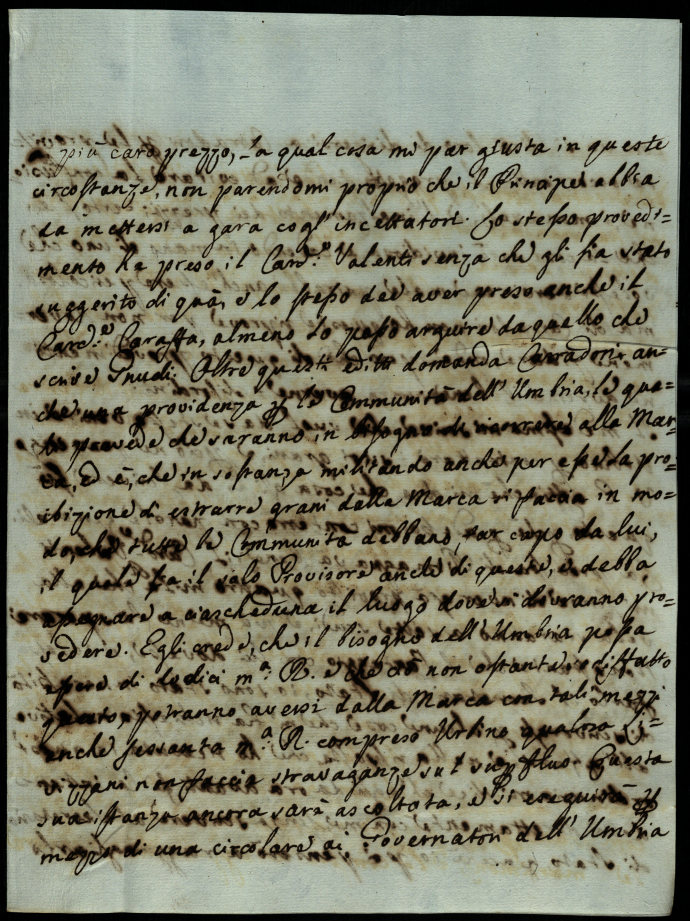 più caro prezzo, la qual cosa mi par giusta in queste
circostanze, non parendomi proprio che il Principe abbia
da mettersi a gara cogl'incettatori. Lo stesso provedi=
mento ha preso il Card.e Valenti senza che gli sia stato
suggerito di quà, e lo stesso dee aver preso anche il
Card.e Caraffa, almeno lo posso arguire da quello che
scrive Gnudi. Oltre questi editti domanda Corradori an=
che una providenza p le Communità dell'Umbria, le qua=
li prevede che saranno in bisogno di ricorrere alla Mar=
ca, ed è, che in sostanza militando anche per esse la pro=
ibizione di estrarre grani dalla Marca si faccia in mo=
do, che tutte le Communità debbano far capo da lui,
il quale sia il solo Provisore anche di queste, e debba
assegnare a ciascheduna il luogo dove si dovranno pro=
vedere. Egli crede, che il bisogno dell'Umbria possa
essere di dodici m.a R. e che ciò non ostante, e diffalto
questo, potranno aversi dalla Marca con tali mezzi
anche sessanta m.a R. compreso Urbino, qualora Li=
vizzani non faccia stravaganze sul superfluo. Questa
sua istanza ancora sarà ascoltata, e si eseguirà p
mezzo di una circolare ai Governatori dell'Umbria